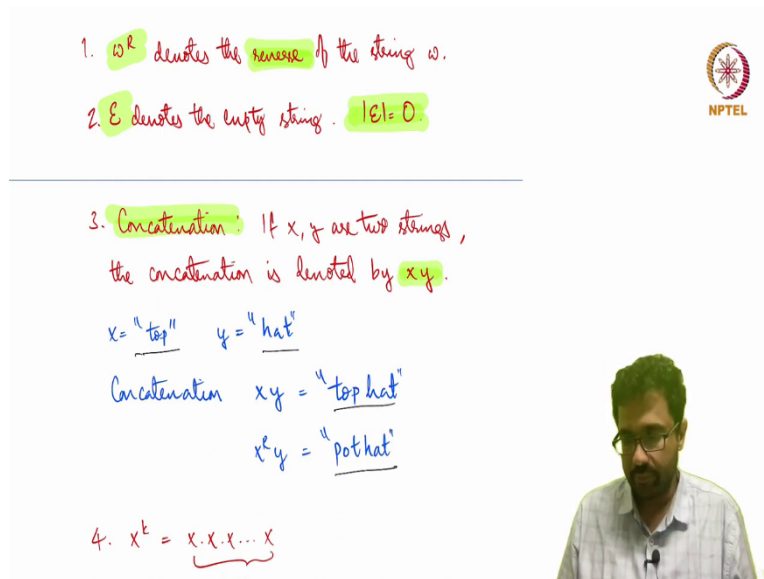 1. ω^R denotes the reverse of the string ω.
2. ε denotes the empty string. |ε| = 0.
NPTEL
3. Concatenation: If x, y are two strings,
the concatenation is denoted by xy.
x = "top" y = "hat"
Concatenation xy = "tophat"
x^R y = "pothat"
4. x^k = x.x.x... x